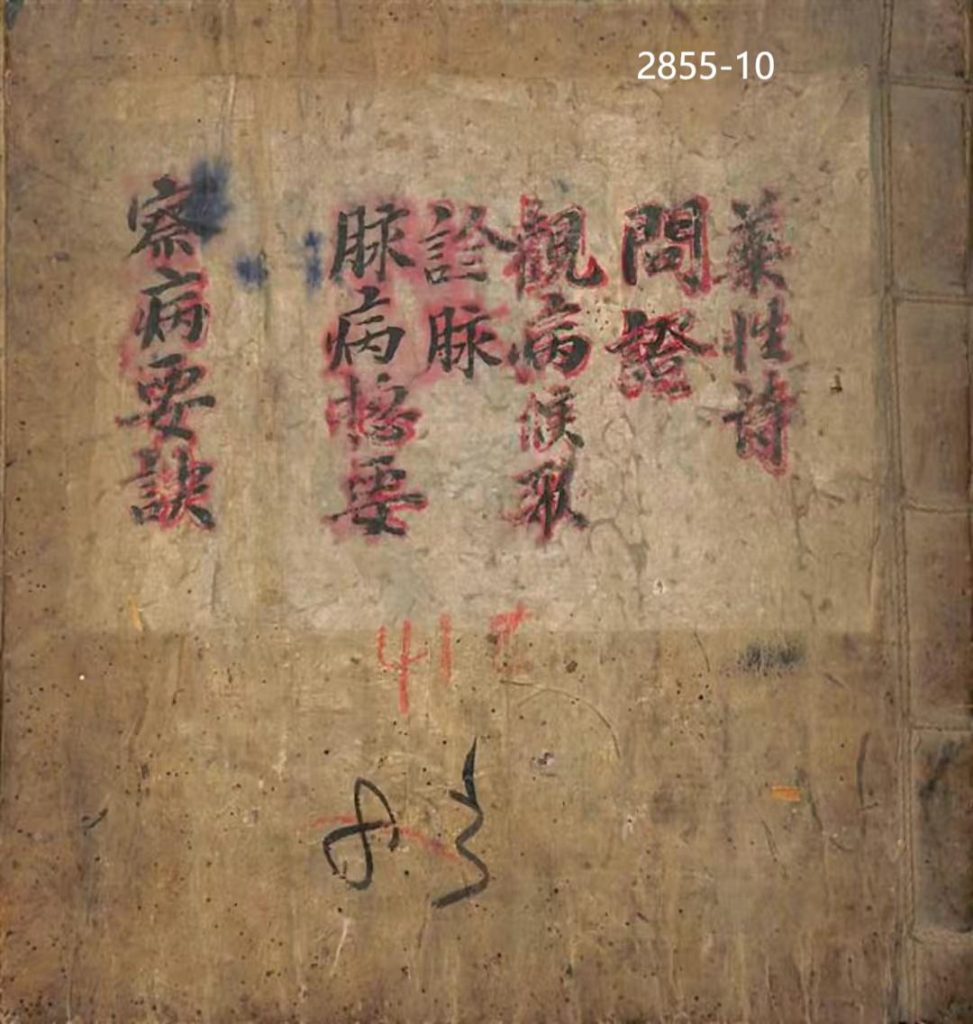 2855-10
藥性詩
問證
觀病候歌
診脉
脉病捴要
察病要訣
41